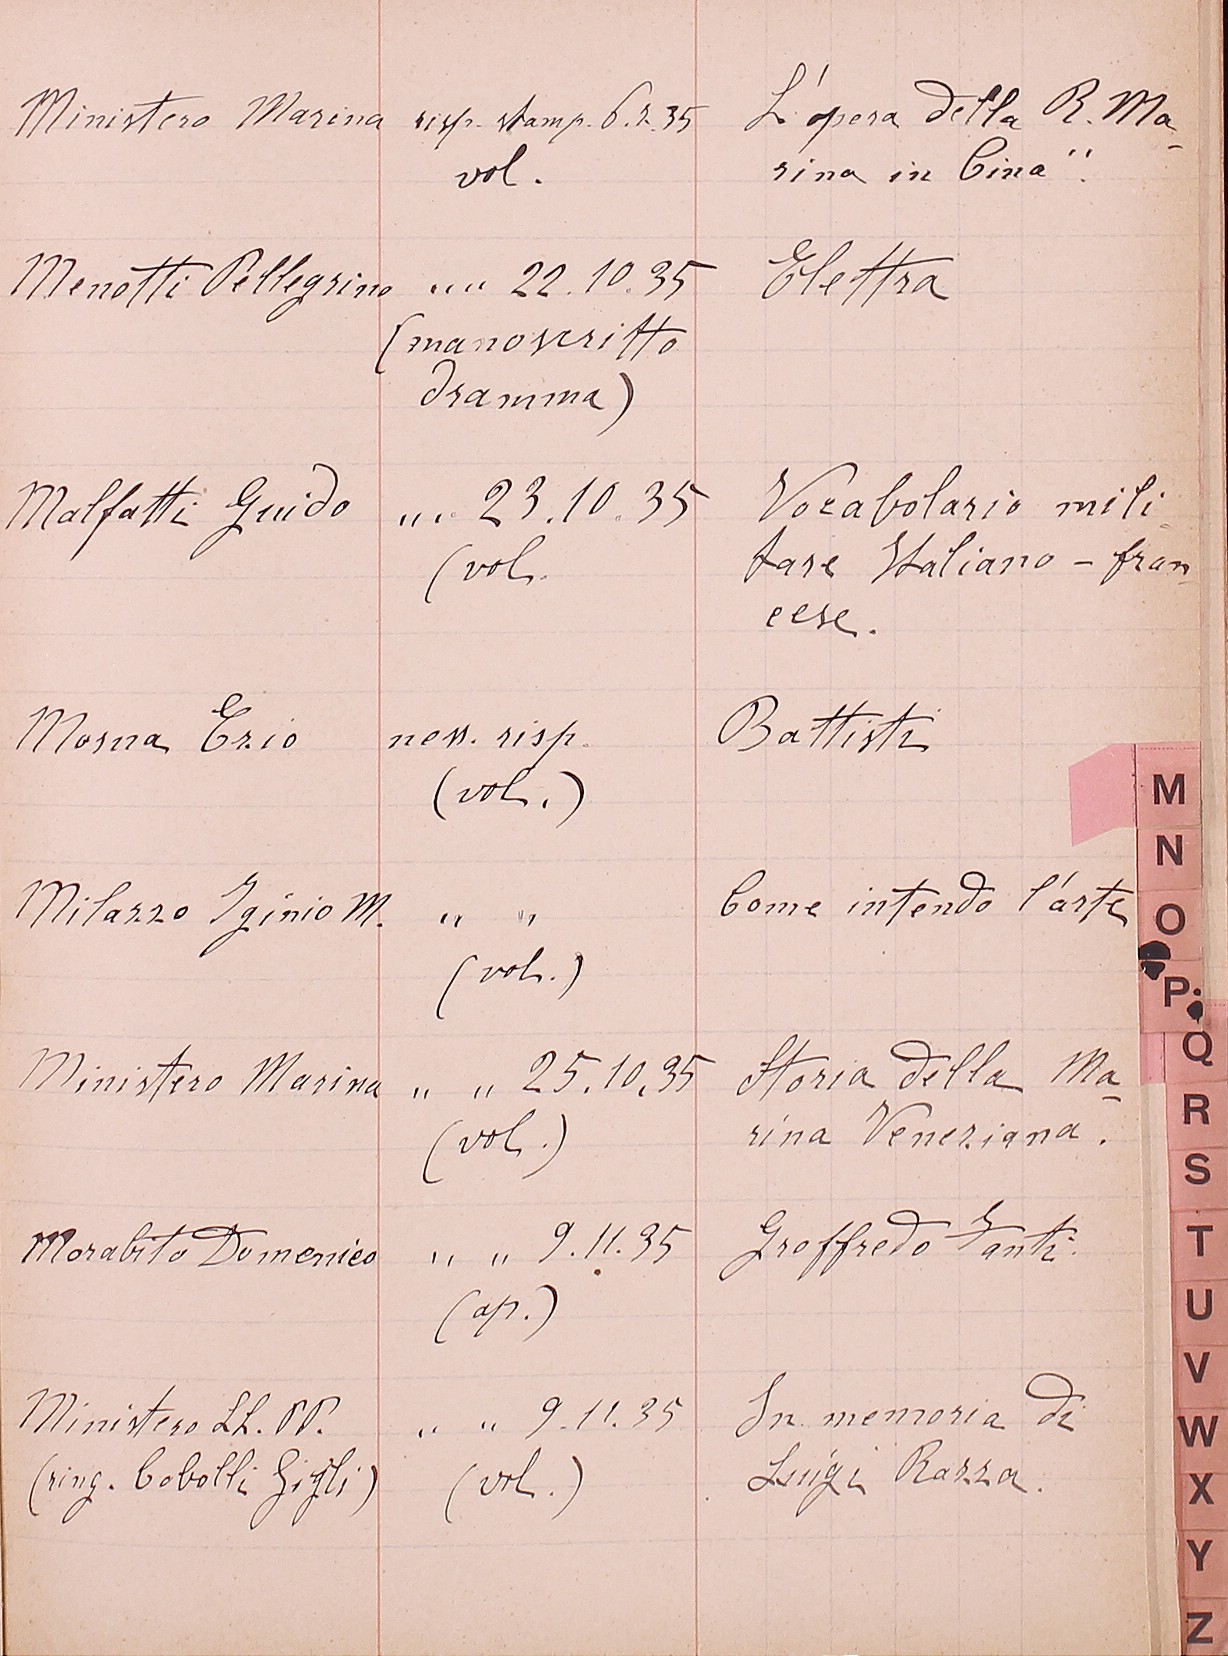 Ministero Marina risp. stamp. 6.2.35 L'opera della R. Ma-
vol. rina in Cina".
Menotti Pellegrino „ „ 22.10.35 Elettra
(manoscritto
dramma)
Malfatti Guido „ „ 23.10.35 Vocabolario mili-
(vol. tare Italiano - fran-
cese.
Mosna Ezio ness. risp. Battisti
(vol.)
Milazzo Iginio M. „ „ Come intendo l'arte
(vol.)
Ministero Marina „ „ 25.10.35 Storia della Ma-
(vol.) rina Veneziana.
Morabito Domenico „ „ 9.11.35 Groffredo Fanti.
(op.)
Ministero LL. PP. „ „ 9.11.35 In memoria di
(ring. Cobolli Gigli) (vol.) Luigi Razza.
M
N
O
P
Q
R
S
T
U
V
W
X
Y
Z